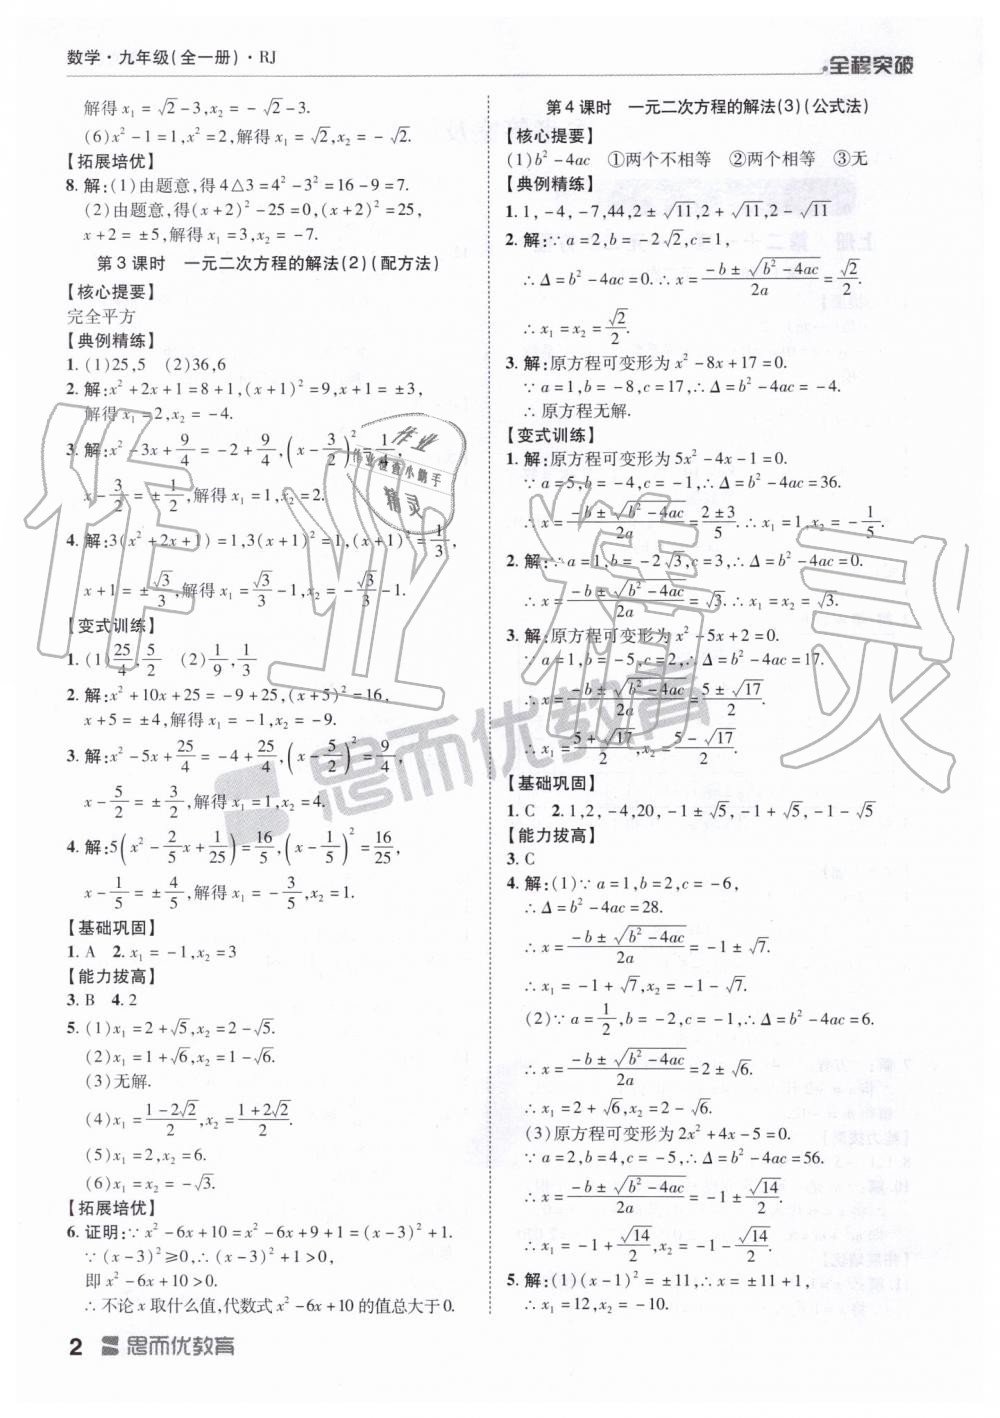 数学·九年级(全一册)·RJ
全程突破
解得x₁=√2-3,x₂=-√2-3.
(6)x²-1=1,x²=2,解得x₁=√2,x₂=-√2.
【拓展培优】
8.解:(1)由题意,得4△3=4²-3²=16-9=7.
(2)由题意,得(x+2)²-25=0,(x+2)²=25,
x+2=±5,解得x₁=3,x₂=-7.
第3课时 一元二次方程的解法(2)(配方法)
【核心提要】
完全平方
【典例精练】
1.(1)25,5 (2)36,6
2.解:x²+2x+1=8+1,(x+1)²=9,x+1=±3,
解得x₁=2,x₂=-4.
3.解:x²-3x+9/4=-2+9/4,(x-3/2)²=1/4,
x-3/2=±1/2,解得x₁=1,x₂=2.
4.解:3(x²+2x+1)=1,3(x+1)²=1,(x+1)²=1/3,
x+1=±√3/3,解得x₁=√3/3-1,x₂=-√3/3-1.
【变式训练】
1.(1)25/4,5/2 (2)1/9,1/3
2.解:x²+10x+25=-9+25,(x+5)²=16,
x+5=±4,解得x₁=-1,x₂=-9.
3.解:x²-5x+25/4=-4+25/4,(x-5/2)²=9/4,
x-5/2=±3/2,解得x₁=1,x₂=4.
4.解:5(x²-2/5x+1/25)=16/5,(x-1/5)²=16/25,
x-1/5=±4/5,解得x₁=-3/5,x₂=1.
【基础巩固】
1.A 2.x₁=-1,x₂=3
【能力拔高】
3.B 4.2
5.(1)x₁=2+√5,x₂=2-√5.
(2)x₁=1+√6,x₂=1-√6.
(3)无解.
(4)x₁=(1-2√2)/2,x₂=(1+2√2)/2.
(5)x₁=2,x₂=6.
(6)x₁=x₂=-√3.
【拓展培优】
6.证明:∵x²-6x+10=x²-6x+9+1=(x-3)²+1.
∵(x-3)²≥0,∴(x-3)²+1>0,
即x²-6x+10>0.
∴不论x取什么值,代数式x²-6x+10的值总大于0.
第4课时 一元二次方程的解法(3)(公式法)
【核心提要】
(1)b²-4ac ①两个不相等 ②两个相等 ③无
【典例精练】
1.1,-4,-7,44,2±√11,2+√11,2-√11
2.解:∵a=2,b=-2√2,c=1,
∴Δ=b²-4ac=0.∴x=(-b±√(b²-4ac))/2a=√2/2.
∴x₁=x₂=√2/2.
3.解:原方程可变形为x²-8x+17=0.
∵a=1,b=-8,c=17,∴Δ=b²-4ac=-4.
∴原方程无解.
【变式训练】
1.解:原方程可变形为5x²-4x-1=0.
∵a=5,b=-4,c=-1,∴Δ=b²-4ac=36.
∴x=(-b±√(b²-4ac))/2a=(2±3)/5.∴x₁=1,x₂=-1/5.
2.解:∵a=1,b=-2√3,c=3,∴Δ=b²-4ac=0.
∴x=(-b±√(b²-4ac))/2a=√3.∴x₁=x₂=√3.
3.解:原方程可变形为x²-5x+2=0.
∵a=1,b=-5,c=2,∴Δ=b²-4ac=17.
∴x=(-b±√(b²-4ac))/2a=(5±√17)/2.
∴x₁=(5+√17)/2,x₂=(5-√17)/2.
【基础巩固】
1.C 2.1,2,-4,20,-1±√5,-1+√5,-1-√5
【能力拔高】
3.C
4.解:(1)∵a=1,b=2,c=-6,
∴Δ=b²-4ac=28.
∴x=(-b±√(b²-4ac))/2a=-1±√7.
∴x₁=-1+√7,x₂=-1-√7.
(2)∵a=1/2,b=-2,c=-1,∴Δ=b²-4ac=6.
∴x=(-b±√(b²-4ac))/2a=2±√6.
∴x₁=2+√6,x₂=2-√6.
(3)原方程可变形为2x²+4x-5=0.
∵a=2,b=4,c=-5,∴Δ=b²-4ac=56.
∴x=(-b±√(b²-4ac))/2a=-1±√14/2.
∴x₁=-1+√14/2,x₂=-1-√14/2.
5.解:(1)(x-1)²=±11,∴x=±11+1,
∴x₁=12,x₂=-10.
2 思而优教育
思而优教育
作业精灵
作业
作业检查小助手
精灵